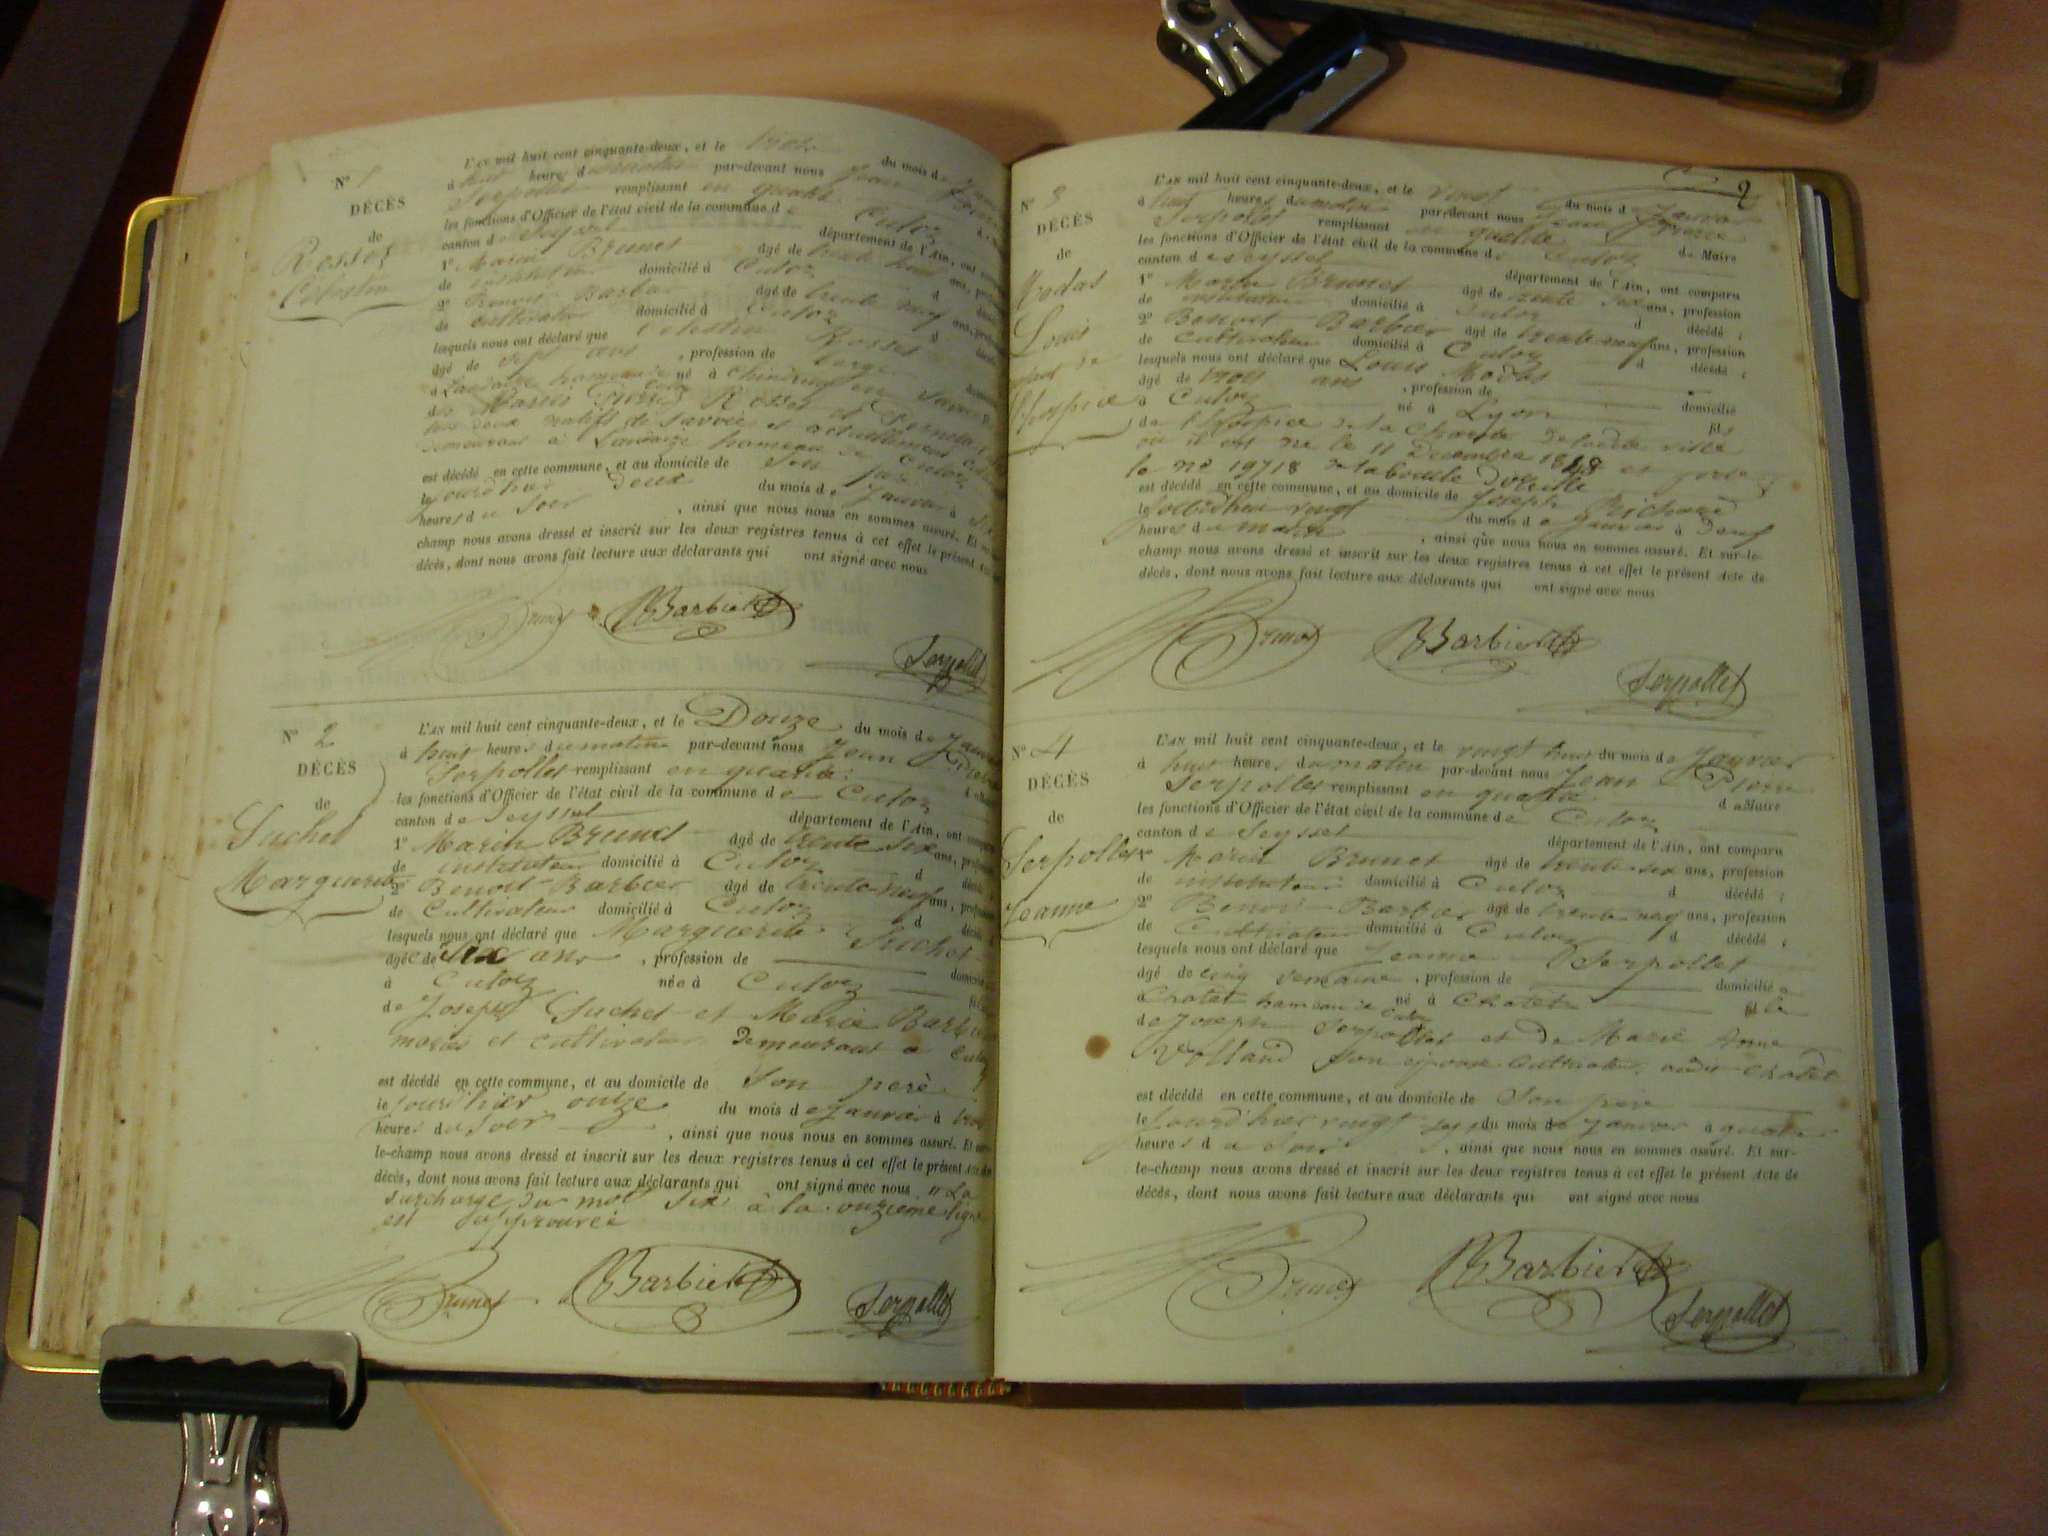 N° 1
DÉCÈS
de
Rosset
Célestin
L'AN mil huit cent cinquante-deux, et le trois du mois de
à huit heures d par-devant nous Jean
Serpollet remplissant en qualité
les fonctions d'Officier de l'état civil de la commune de Culoz
canton de Seyssel département de l'Ain, ont
1° Marin Brunet âgé de trente
de instituteur domicilié à Culoz d
2° Benoit Barbier âgé de trente neuf ans,
de cultivateur domicilié à Culoz d
lesquels nous ont déclaré que Celestin Rosset
âgé de sept ans , profession de berger
à Landaize hameau de né à Chindrieux en Savoie
de Marin Pierre Rosset et Pernette
tous deux natifs de Savoie et actuellement
demeurant à Landaize hameau de Culoz
est décédé en cette commune, et au domicile de son père
le jourd'hier deux du mois de Janvier à
heures du soir , ainsi que nous nous en sommes assuré. Et
champ nous avons dressé et inscrit sur les deux registres tenus à cet effet le présent
décès, dont nous avons fait lecture aux déclarants qui ont signé avec nous
Brunet Barbier
Serpollet
N° 2
DÉCÈS
de
Suchet
Marguerite
L'AN mil huit cent cinquante-deux, et le Douze du mois de
à huit heures du matin par-devant nous Jean
Serpollet remplissant en qualité
les fonctions d'Officier de l'état civil de la commune de Culoz
canton de Seyssel département de l'Ain, ont
1° Marin Brunet âgé de trente six ans,
de instituteur domicilié à Culoz d
2° Benoit Barbier âgé de trente neuf ans,
de Cultivateur domicilié à Culoz d
lesquels nous ont déclaré que Marguerite Suchet
âgée de six ans , profession de
à Culoz née à Culoz
de Joseph Suchet et Marie
mariés et cultivateurs Demeurant a
est décédé en cette commune, et au domicile de son père
le jourd'hier onze du mois de Janvier à
heures du soir , ainsi que nous nous en sommes assuré. Et
le-champ nous avons dressé et inscrit sur les deux registres tenus à cet effet le présent Acte
décès, dont nous avons fait lecture aux déclarants qui ont signé avec nous " La
surcharge du mot six à la onzieme ligne
est approuvée
Brunet Barbier Serpollet
2
N° 3
DÉCÈS
de
Modas
Louis
enfant de
l'hospice
L'AN mil huit cent cinquante-deux, et le vingt du mois de Janvier
à huit heures du matin par-devant nous Jean Pierre
Serpollet remplissant en qualité
les fonctions d'Officier de l'état civil de la commune de Culoz de Maire
canton de Seyssel département de l'Ain, ont comparu
1° Marin Brunet âgé de trente six ans, profession
de instituteur domicilié à Culoz d décédé ;
2° Benoit Barbier âgé de trente neuf ans, profession
de Cultivateur domicilié à Culoz d décédé ;
lesquels nous ont déclaré que Louis Modas
âgé de trois ans , profession de domicilié
à Culoz né à Lyon fils
de l'hospice de la Charité de ladite ville
où il est né le 11 Decembre 1848 et porte
le n° 19718 a la boucle d'oreille
est décédé en cette commune, et au domicile de Joseph Richard
le jourd'hui vingt du mois de Janvier à Deux
heures du matin , ainsi que nous nous en sommes assuré. Et sur-le-
champ nous avons dressé et inscrit sur les deux registres tenus à cet effet le présent Acte de
décès, dont nous avons fait lecture aux déclarants qui ont signé avec nous
Brunet Barbier
Serpollet
N° 4
DÉCÈS
de
Serpollet
Jeanne
L'AN mil huit cent cinquante-deux, et le vingt huit du mois de Janvier
à huit heures du matin par-devant nous Jean Pierre
Serpollet remplissant en qualité
les fonctions d'Officier de l'état civil de la commune de Culoz de Maire
canton de Seyssel département de l'Ain, ont comparu
1° Marin Brunet âgé de trente six ans, profession
de instituteur domicilié à Culoz d décédé ;
2° Benoit Barbier âgé de trente neuf ans, profession
de Cultivateur domicilié à Culoz d décédé ;
lesquels nous ont déclaré que Jeanne Serpollet
âgé de cinq semaine , profession de domicilié e
à Chatet hameau de Culoz né à Chatet fille
de Joseph Serpollet et de Marie Anne
Volland son epouse Cultivateurs audit Chatet
est décédé en cette commune, et au domicile de Son pere
le jourd'hier vingt sept du mois de Janvier à quatre
heures du soir , ainsi que nous nous en sommes assuré. Et sur-
le-champ nous avons dressé et inscrit sur les deux registres tenus à cet effet le présent Acte de
décès, dont nous avons fait lecture aux déclarants qui ont signé avec nous
Brunet Barbier
Serpollet